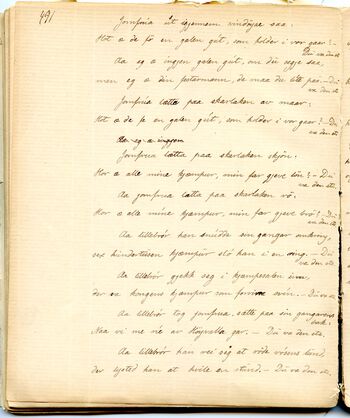 491
Jomfria út igjennom vindöyie saa:
Hot æ de fö en galen gut, som holder i vor gaar?
Du væ den etc.
Aa eg æ ingjen galen gut, om du segje saa,
men eg æ din festermann, de maa du lite paa. – Du va den etc.
Jomfria tætta paa skarlaken av maar:
Hot æ de fe en galen gut, som holder i vor gaar? – Du va den etc.
Aa eg æ ingjen
Jomfrua tætta paa skarlaken skjön:
Hor æ alle mine kjæmpur, min far gjeve lön? – Du va den etc.
Aa jomfrua tætta paa skarlaken rö:
Hor æ alle mine kjæmpur, min far gjeve brö? – Du va den etc.
Aa lillebror han snudde sin gangar omkring,
sex hundertusen kjæmpur slo han i en ring. – Du va den etc.
Aa lillebrór gjekk seg i kjæmpesalen inn,
der va kongens kjæmpur som svin. – Du va den etc.
Aa lillebrór tog jomfrua, satte paa sin gangarens bak:
Naa vi me rie av gar. – Du va den etc.
Aa lillebrór han rei sig at röde rosens lund,
der lysted han at kvile en stund. – Du va den etc.